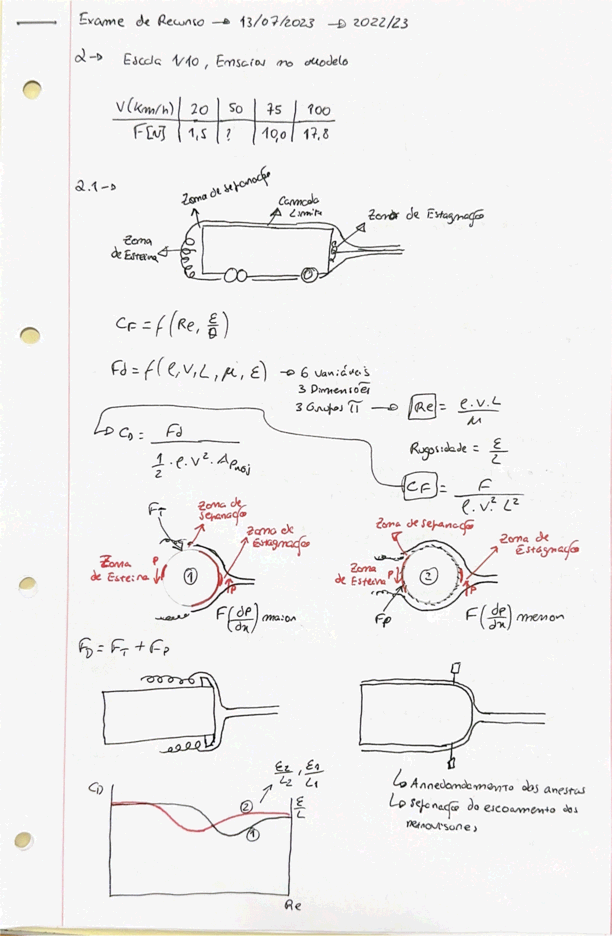 Exame de Recurso → 13/07/2023 → 2022/23
2→ Escala 1/10, Ensaios no modelo
V(Km/h) | 20 | 50 | 75 | 100
F[N] | 1,5 | ? | 10,0 | 17,8
2.1→
Zona de separação
Camada Limite
Zona de Estagnação
Zona de Esteira
CF = f(Re, ε/D)
Fd = f(ρ, V, L, μ, ε) → 6 Variáveis
3 Dimensões
3 Grupos π → Re = ρ.V.L / μ
Rugosidade = ε/L
CD = Fd / (1/2 . ρ . V² . Aproj)
CF = F / (ρ . V² . L²)
FT
Zona de separação
Zona de Estagnação
Zona de Esteira
P
①
P
F(dp/dx) maior
Zona de separação
Zona de Estagnação
Zona de Esteira
P
②
P
FP
F(dp/dx) menor
FD = FT + FP
ε2/L2, ε1/L1
CD
②
①
ε/L
Re
↳ Arredondamento das arestas
↳ separação do escoamento dos
retrovisores